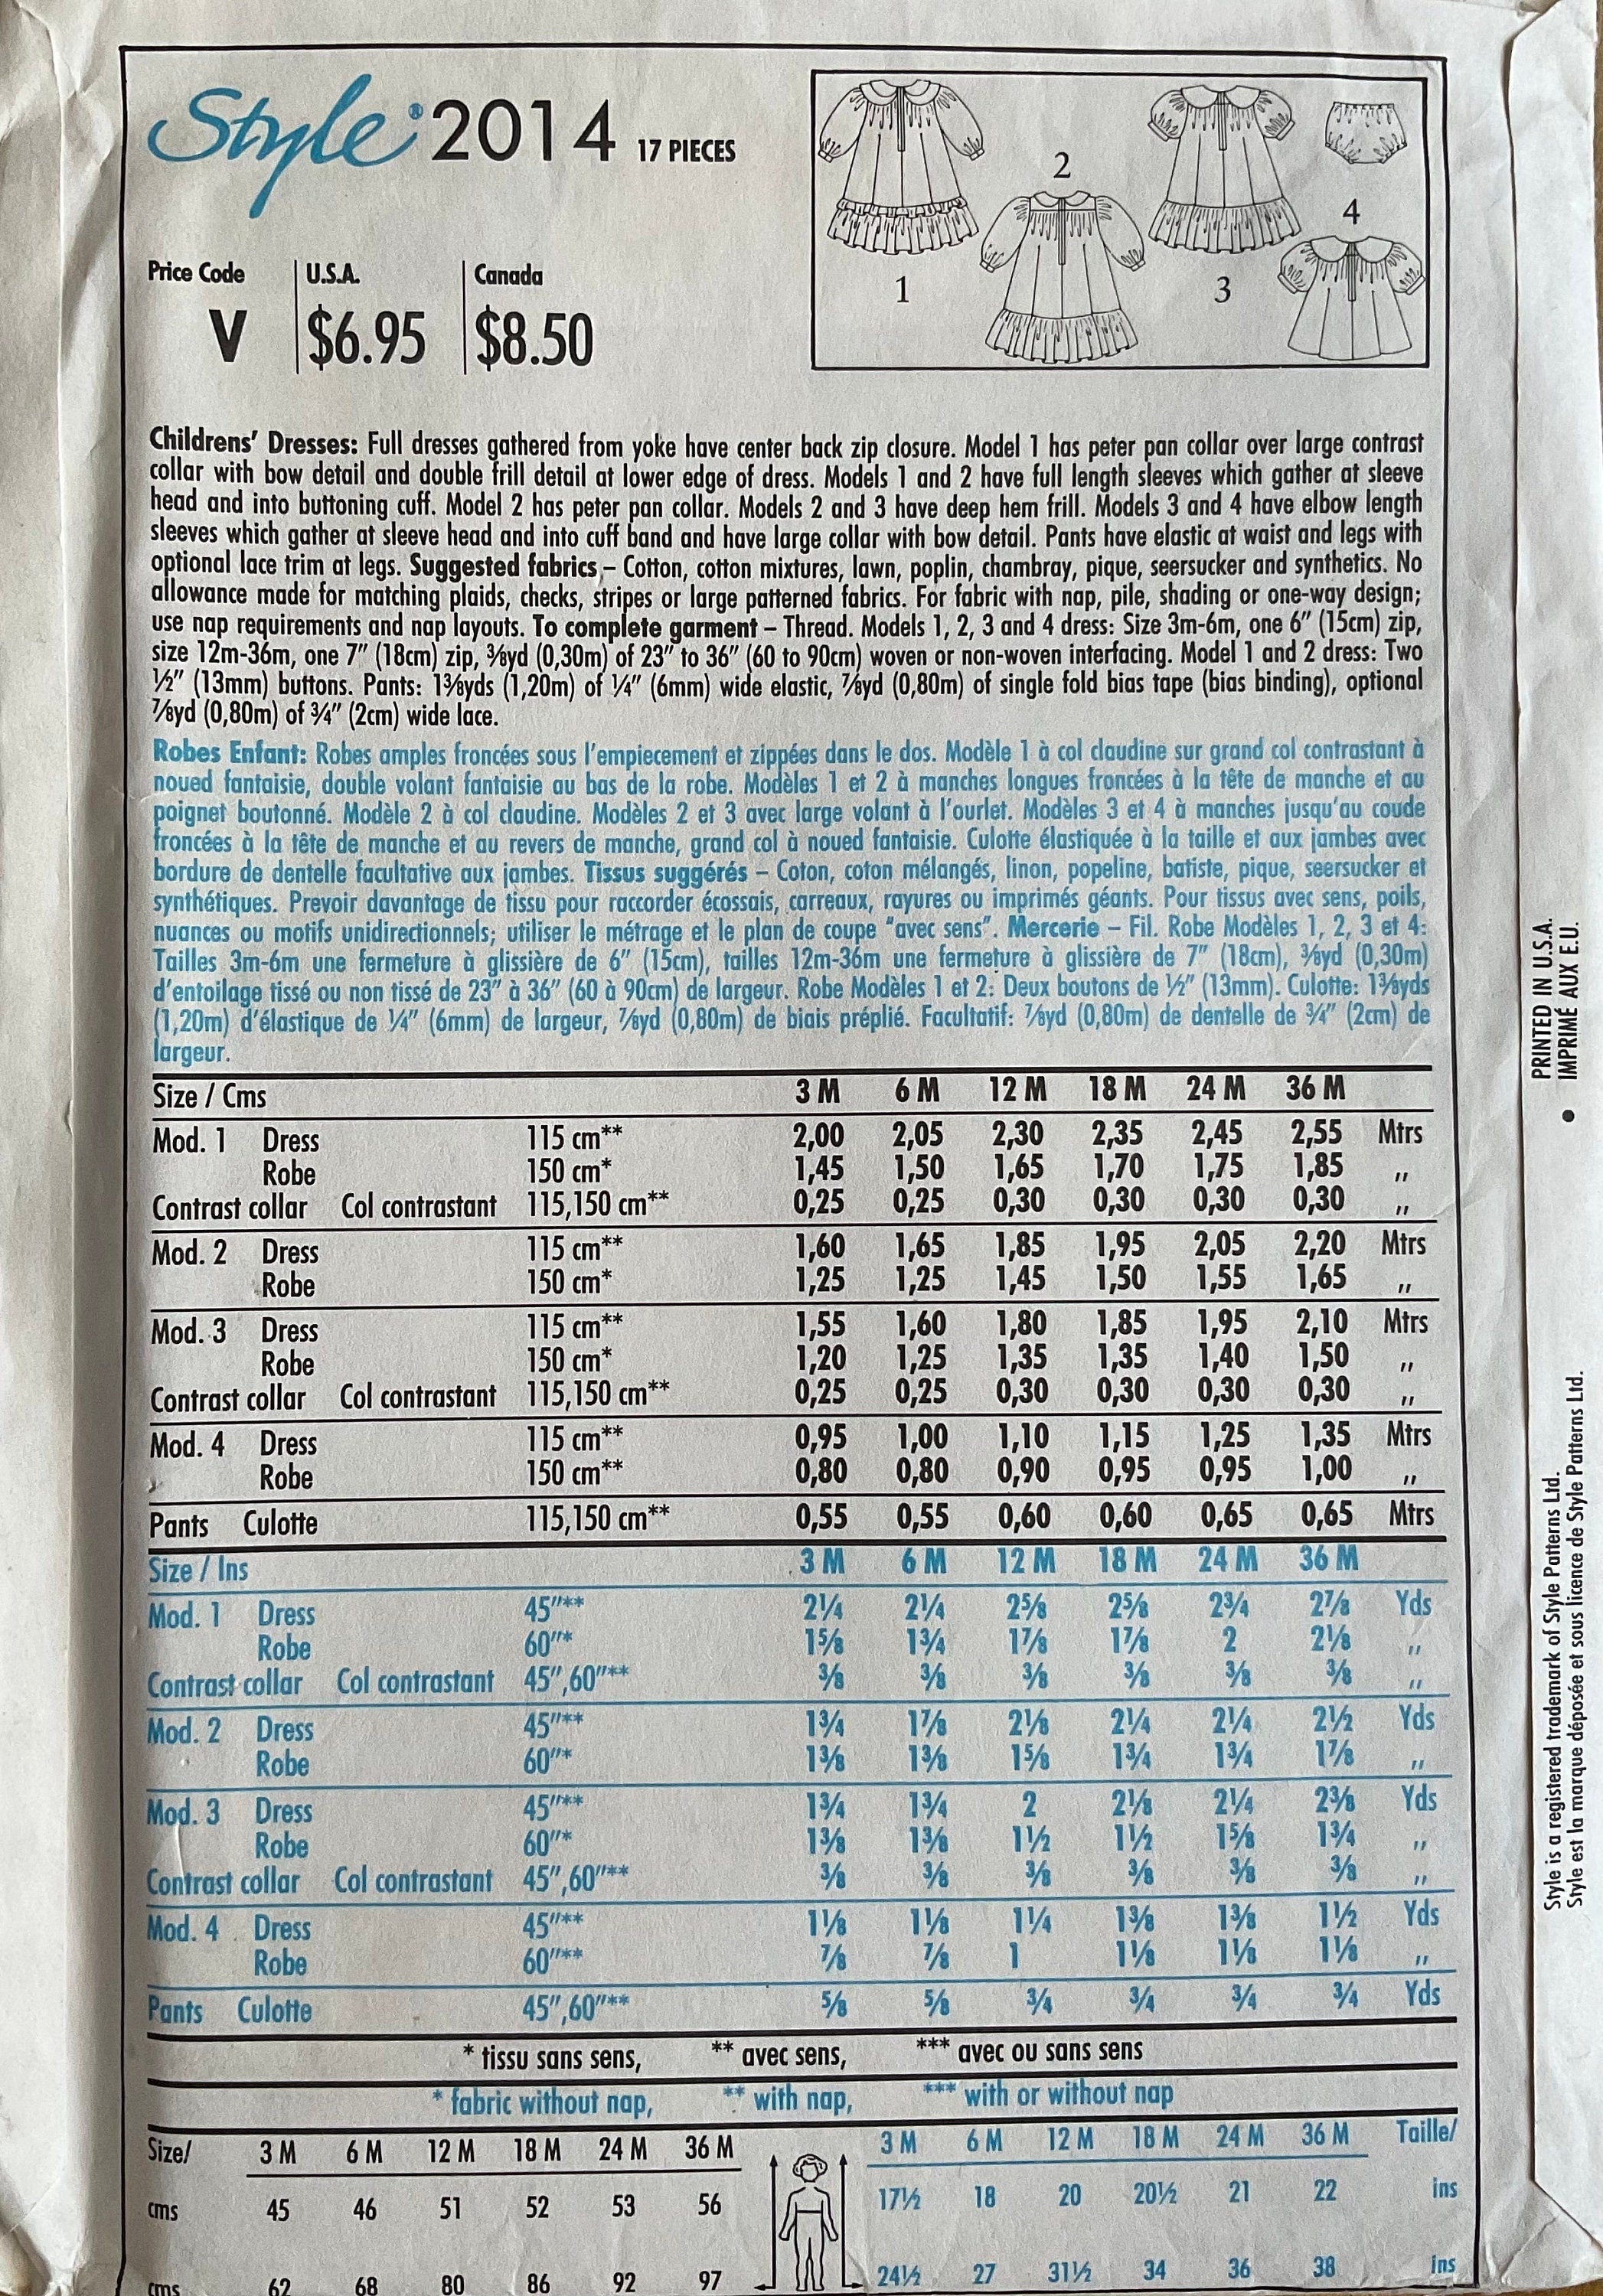 Style® 2014 17 PIECES
1
2
3
4
Price Code U.S.A. Canada
V $6.95 $8.50
Childrens' Dresses: Full dresses gathered from yoke have center back zip closure. Model 1 has peter pan collar over large contrast
collar with bow detail and double frill detail at lower edge of dress. Models 1 and 2 have full length sleeves which gather at sleeve
head and into buttoning cuff. Model 2 has peter pan collar. Models 2 and 3 have deep hem frill. Models 3 and 4 have elbow length
sleeves which gather at sleeve head and into cuff band and have large collar with bow detail. Pants have elastic at waist and legs with
optional lace trim at legs. Suggested fabrics – Cotton, cotton mixtures, lawn, poplin, chambray, pique, seersucker and synthetics. No
allowance made for matching plaids, checks, stripes or large patterned fabrics. For fabric with nap, pile, shading or one-way design;
use nap requirements and nap layouts. To complete garment – Thread. Models 1, 2, 3 and 4 dress: Size 3m-6m, one 6" (15cm) zip,
size 12m-36m, one 7" (18cm) zip, ⅜yd (0,30m) of 23" to 36" (60 to 90cm) woven or non-woven interfacing. Model 1 and 2 dress: Two
½" (13mm) buttons. Pants: 1⅜yds (1,20m) of ¼" (6mm) wide elastic, ⅞yd (0,80m) of single fold bias tape (bias binding), optional
⅞yd (0,80m) of ¾" (2cm) wide lace.
Robes Enfant: Robes amples froncées sous l'empiecement et zippées dans le dos. Modèle 1 à col claudine sur grand col contrastant à
noued fantaisie, double volant fantaisie au bas de la robe. Modèles 1 et 2 à manches longues froncées à la tête de manche et au
poignet boutonné. Modèle 2 à col claudine. Modèles 2 et 3 avec large volant à l'ourlet. Modèles 3 et 4 à manches jusqu'au coude
froncées à la tête de manche et au revers de manche, grand col à noued fantaisie. Culotte élastiquée à la taille et aux jambes avec
bordure de dentelle facultative aux jambes. Tissus suggérés – Coton, coton mélangés, linon, popeline, batiste, pique, seersucker et
synthétiques. Prevoir davantage de tissu pour raccorder écossais, carreaux, rayures ou imprimés géants. Pour tissus avec sens, poils,
nuances ou motifs unidirectionnels; utiliser le métrage et le plan de coupe "avec sens". Mercerie – Fil. Robe Modèles 1, 2, 3 et 4:
Tailles 3m-6m une fermeture à glissière de 6" (15cm), tailles 12m-36m une fermeture à glissière de 7" (18cm), ⅜yd (0,30m)
d'entoilage tissé ou non tissé de 23" à 36" (60 à 90cm) de largeur. Robe Modèles 1 et 2: Deux boutons de ½" (13mm). Culotte: 1⅜yds
(1,20m) d'élastique de ¼" (6mm) de largeur, ⅞yd (0,80m) de biais préplié. Facultatif: ⅞yd (0,80m) de dentelle de ¾" (2cm) de
largeur.
Size / Cms 3 M 6 M 12 M 18 M 24 M 36 M
Mod. 1 Dress 115 cm** 2,00 2,05 2,30 2,35 2,45 2,55 Mtrs
Robe 150 cm* 1,45 1,50 1,65 1,70 1,75 1,85 ,,
Contrast collar Col contrastant 115,150 cm** 0,25 0,25 0,30 0,30 0,30 0,30 ,,
Mod. 2 Dress 115 cm** 1,60 1,65 1,85 1,95 2,05 2,20 Mtrs
Robe 150 cm* 1,25 1,25 1,45 1,50 1,55 1,65 ,,
Mod. 3 Dress 115 cm** 1,55 1,60 1,80 1,85 1,95 2,10 Mtrs
Robe 150 cm* 1,20 1,25 1,35 1,35 1,40 1,50 ,,
Contrast collar Col contrastant 115,150 cm** 0,25 0,25 0,30 0,30 0,30 0,30 ,,
Mod. 4 Dress 115 cm** 0,95 1,00 1,10 1,15 1,25 1,35 Mtrs
Robe 150 cm** 0,80 0,80 0,90 0,95 0,95 1,00 ,,
Pants Culotte 115,150 cm** 0,55 0,55 0,60 0,60 0,65 0,65 Mtrs
Size / Ins 3 M 6 M 12 M 18 M 24 M 36 M
Mod. 1 Dress 45"** 2¼ 2¼ 2⅝ 2⅝ 2¾ 2⅞ Yds
Robe 60"* 1⅝ 1¾ 1⅞ 1⅞ 2 2⅛ ,,
Contrast collar Col contrastant 45",60"** ⅜ ⅜ ⅜ ⅜ ⅜ ⅜ ,,
Mod. 2 Dress 45"** 1¾ 1⅞ 2⅛ 2¼ 2¼ 2½ Yds
Robe 60"* 1⅜ 1⅜ 1⅝ 1¾ 1¾ 1⅞ ,,
Mod. 3 Dress 45"** 1¾ 1¾ 2 2⅛ 2¼ 2⅜ Yds
Robe 60"* 1⅜ 1⅜ 1½ 1½ 1⅝ 1¾ ,,
Contrast collar Col contrastant 45",60"** ⅜ ⅜ ⅜ ⅜ ⅜ ⅜ ,,
Mod. 4 Dress 45"** 1⅛ 1⅛ 1¼ 1⅜ 1⅜ 1½ Yds
Robe 60"** ⅞ ⅞ 1 1⅛ 1⅛ 1⅛ ,,
Pants Culotte 45",60"** ⅝ ⅝ ¾ ¾ ¾ ¾ Yds
* tissu sans sens, ** avec sens, *** avec ou sans sens
* fabric without nap, ** with nap, *** with or without nap
Size/ 3 M 6 M 12 M 18 M 24 M 36 M 3 M 6 M 12 M 18 M 24 M 36 M Taille/
cms 45 46 51 52 53 56 17½ 18 20 20½ 21 22 ins
cms 62 68 80 86 92 97 24½ 27 31½ 34 36 38 ins
PRINTED IN U.S.A.
• IMPRIMÉ AUX E.U.
Style is a registered trademark of Style Patterns Ltd.
Style est la marque déposée et sous licence de Style Patterns Ltd.